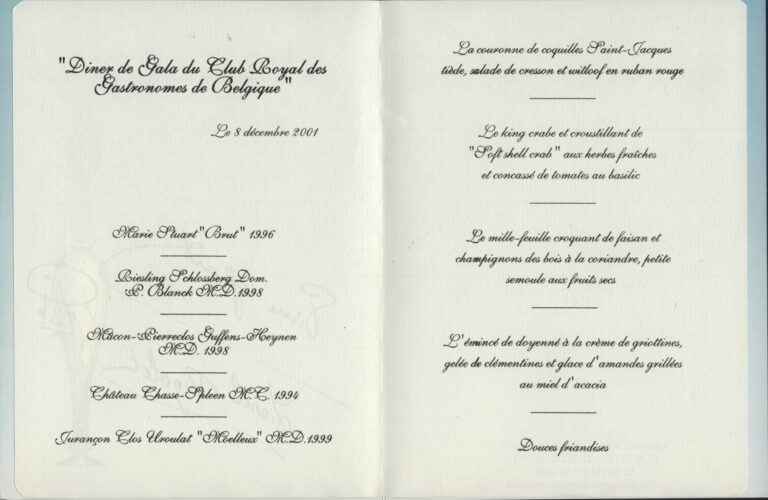 "Diner de Gala du Club Royal des
Gastronomes de Belgique"
Le 8 décembre 2001
Marie Stuart "Brut" 1996
Riesling Schlossberg Dom.
P. Blanck M.D.1998
Mâcon-Pierreclos Guffens-Heynen
M.D. 1998
Château Chasse-Spleen M.C. 1994
Jurançon Clos Uroulat "Moelleux" M.D.1999
La couronne de coquilles Saint-Jacques
tiède, salade de cresson et witloof en ruban rouge
Le king crabe et croustillant de
"Soft shell crab" aux herbes fraîches
et concassé de tomates au basilic
Le mille-feuille croquant de faisan et
champignons des bois à la coriandre, petite
semoule aux fruits secs
L'émincé de doyenné à la crème de griottines,
gelée de clémentines et glace d'amandes grillées
au miel d'acacia
Douces friandises